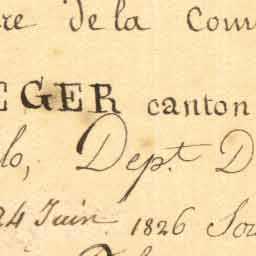 re de la Com
EGER canton
lo, Dept. D
24 Juin 1826 Sou